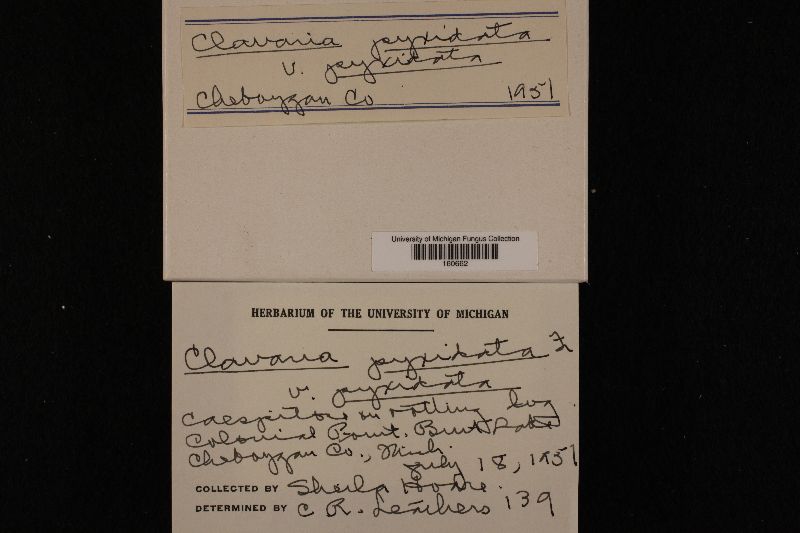 Clavaria pyxidata
v. pyxidata
Cheboygan Co 1951
University of Michigan Fungus Collection
160662
HERBARIUM OF THE UNIVERSITY OF MICHIGAN
Clavaria pyxidata Fr
v. pyxidata
caespitose on rotting log.
Colonial Point. Burt Lake
Cheboygan Co., Mich.
July 18, 1951
COLLECTED BY Sheila
DETERMINED BY C R. Leathers 139